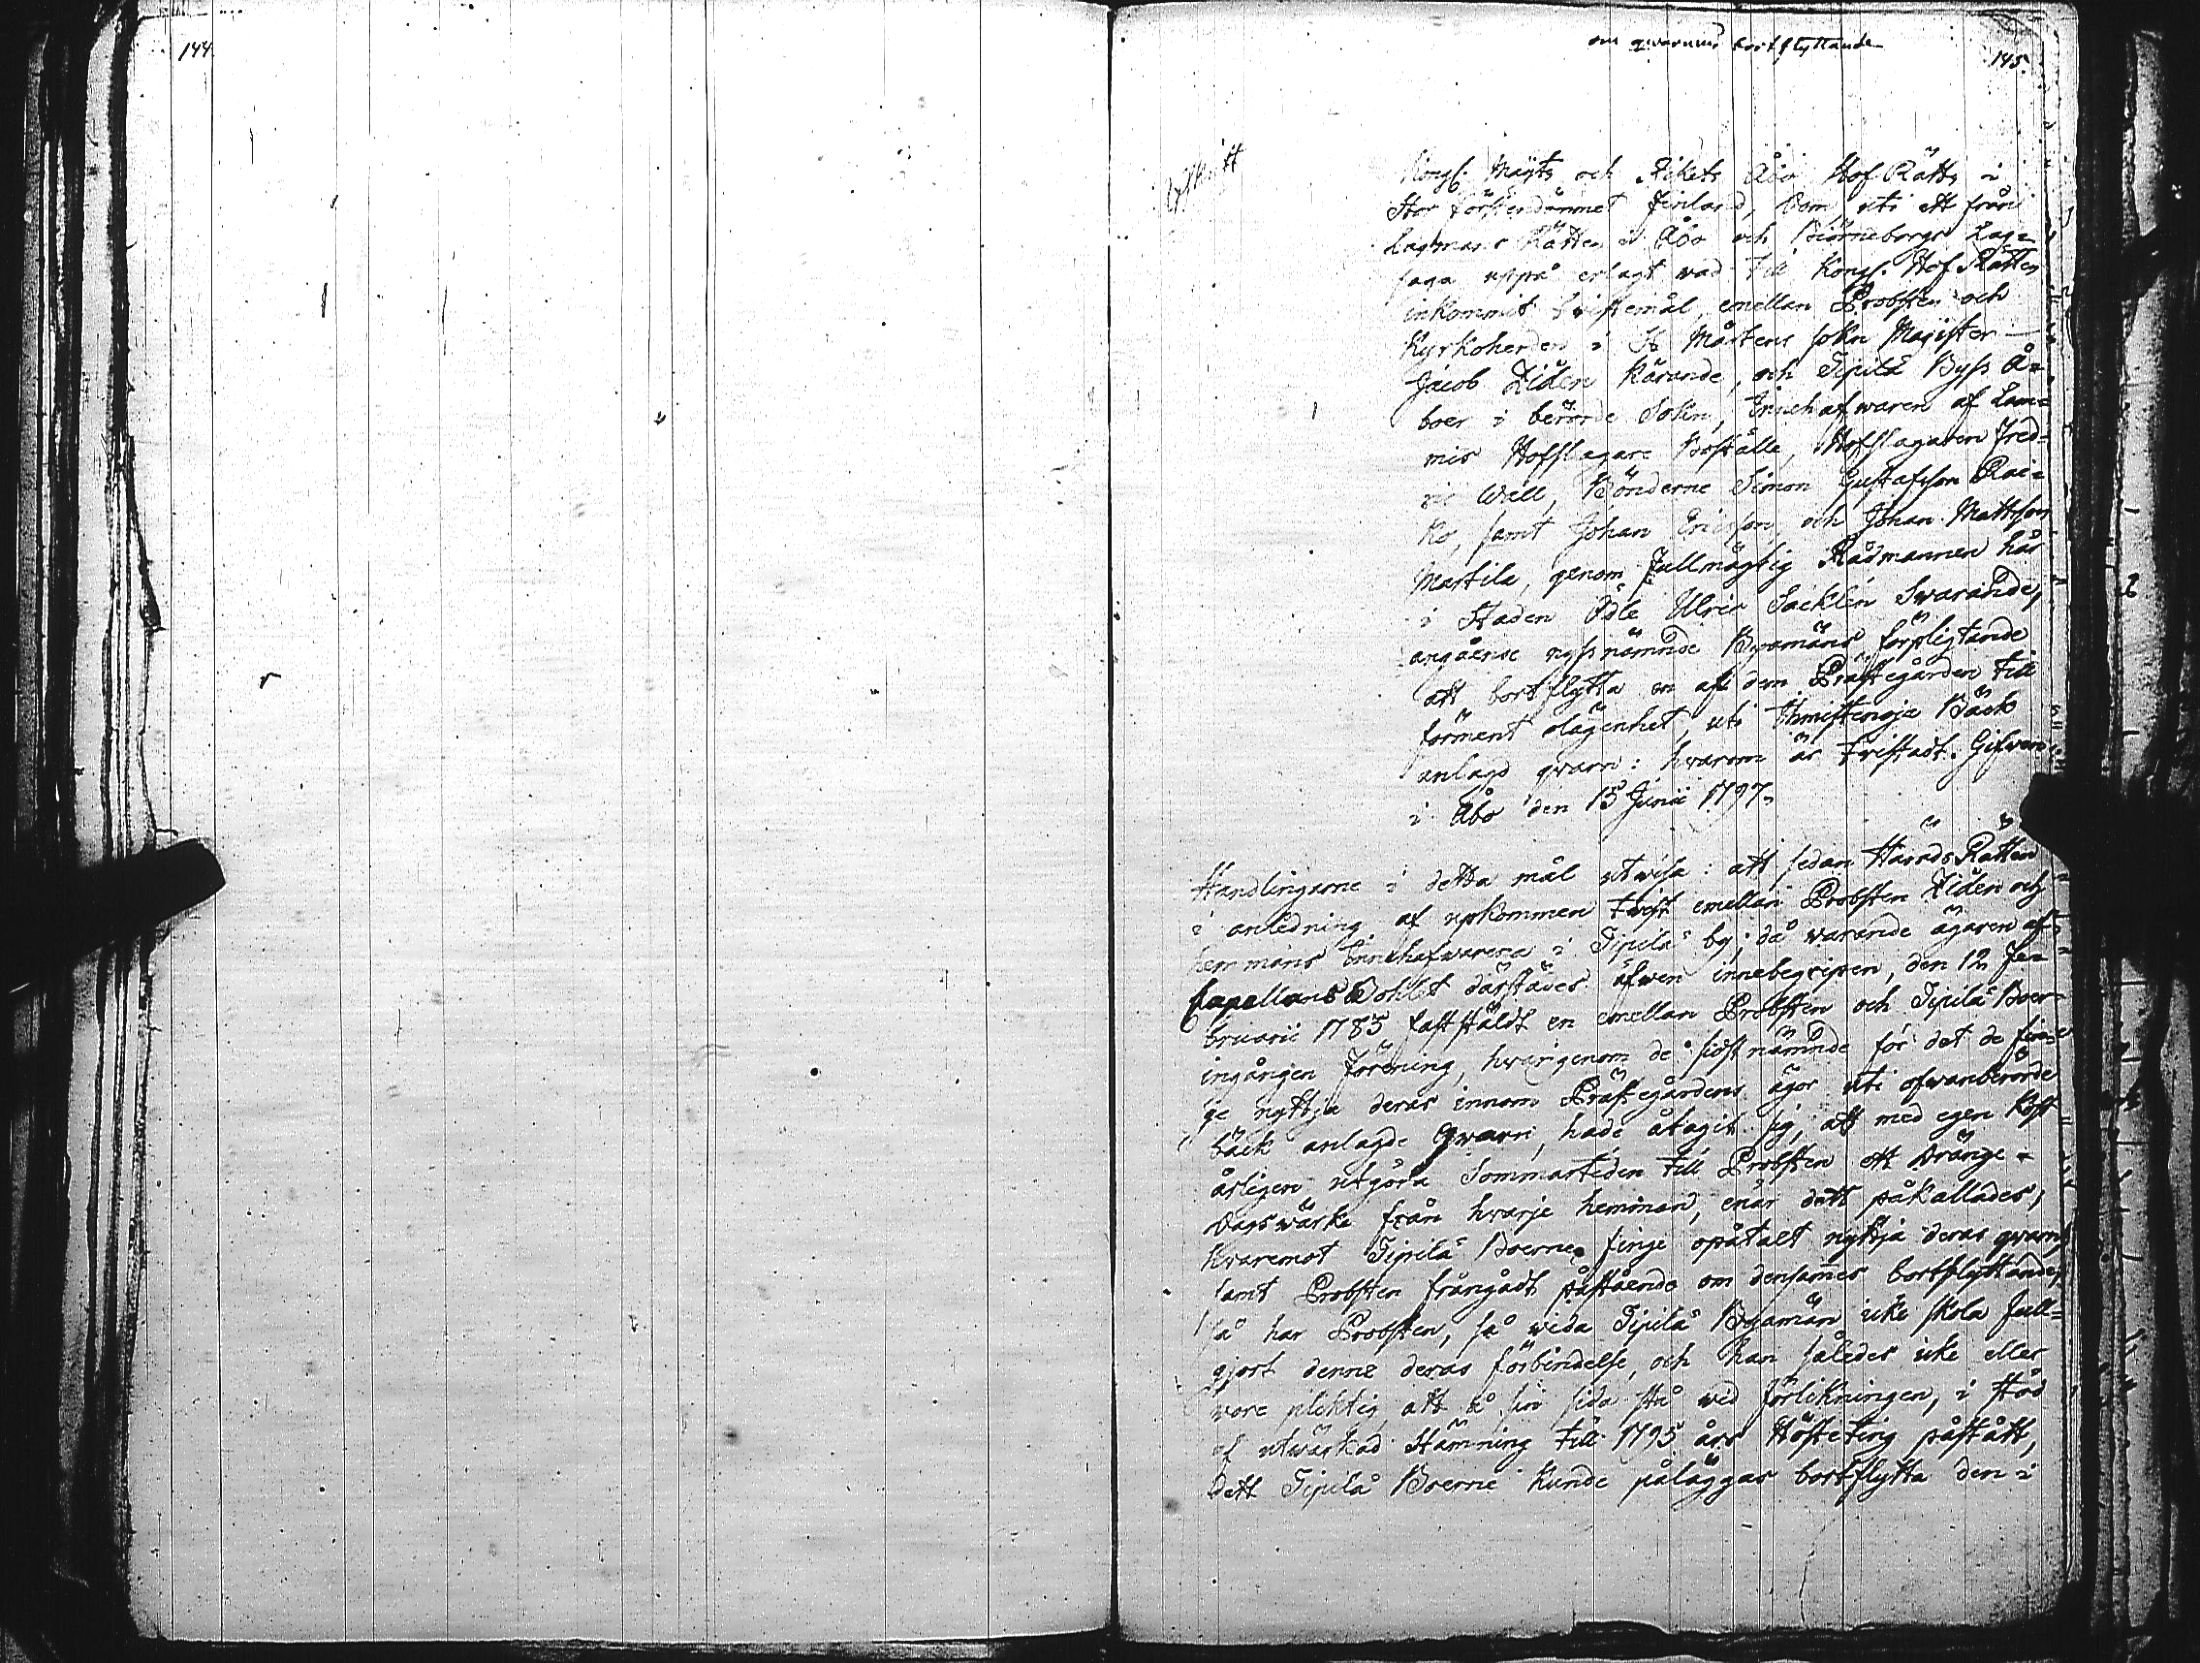 144.
om qvarnens bortflyttande
145.
Afskrift
Kongl. Maijts och Rikets Åbo Hof Rätts i
Stor Förstendömmet Finland, Dom, uti ett från
Lagmans Rätten i Åbo och Biörneborgs Lag=
saga uppå erlagt wad till Kongl. Hof Rätten
inkommit twistemål, emellan Probsten och
Kyrkoherden i St Mårtens Sokn Magister
Jacob Liden kärande, och Tipilä Bys Å=
boer i berörde Sokn, Innehafwaren af Lam=
mis Hofslagare Boställe, Hofslagaren Fred=
ric Well, Bönderne Simon Gustafsson Rai=
ko, samt Johan Ericsson och Johan Mattsson
Martila, genom Fullmägtig Rådmannen här
i Staden Ädle Ulric Sacklén Swarande,
angående nyssnämnde Byamäns förpligtande
att bortflytta en af dem Prästegården till
förment olägenhet, uti Ihmistenoja Bäck
anlagd qvarn: hvarom är twistadt. Gifwen
i Åbo den 15 Junii 1797.
Handlingarne i detta mål utwisa: att sedan HäradsRätten
i anledning af upkommen twist emellan Probsten Liden och
hemmans Innehafwarena i Tipilä by, då warande ägaren af
Capellans Bohlet därstädes äfwen innebegripen, den 12 Fe=
bruarii 1785 fastställdt en emellan Probsten och Tipilä Boer
ingången Förening, hwarigenom de sidstnämnde för det de fin=
ge nyttja deras innom Prästegårdens ägor uti ofwanberörde
bäck anlagde Qwarn, hade åtagit sig, att med egen kost
årligen utgöra Sommartiden till Probsten ett Dränge=
Dagswärke från hvarje hemman, enär dett påkallades;
Hvaremot Tipilä Boerne finge opåtalt nyttja deras qvarn,
samt Probsten frångådt påstående om densammes bortflyttande;
så har Probsten, så wida Tipilä Byamän icke skola full=
gjort denne deras förbindelse, och han således icke eller
vore pliktig att å sin sida stå wid förlikningen, i stöd
af utwärkad Stämning till 1795 års Hösteting påstått,
Dett Tipilä Boerne kunde påläggas bortflytta den i